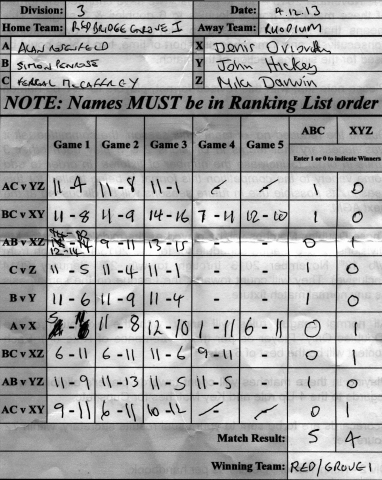 Division: 3 Date: 4.12.13
Home Team: REDBRIDGE GROVE I Away Team: RHODIUM
A ALAN ROSENFELD X Denis Oriordan
B SIMON PENROSE Y John Hickey
C FERGAL McCAFFREY Z Mike Darwin
NOTE: Names MUST be in Ranking List order
Game 1 Game 2 Game 3 Game 4 Game 5 ABC XYZ
Enter 1 or 0 to indicate Winners
AC v YZ 11 - 4 11 - 8 11 - 1 - - 1 0
BC v XY 11 - 8 11 - 9 14 - 16 7 - 11 12 - 10 1 0
AB v XZ 12 - 14 9 - 11 13 - 15 - - 0 1
C v Z 11 - 5 11 - 4 11 - 1 - - 1 0
B v Y 11 - 6 11 - 9 11 - 4 - - 1 0
A v X 11 - 8 12 - 10 1 - 11 6 - 11 0 1
BC v XZ 6 - 11 6 - 11 11 - 6 9 - 11 - 0 1
AB v YZ 11 - 9 11 - 13 11 - 5 11 - 5 - 1 0
AC v XY 9 - 11 6 - 11 10 - 12 - - 0 1
Match Result: 5 4
Winning Team: RED/GROVE 1